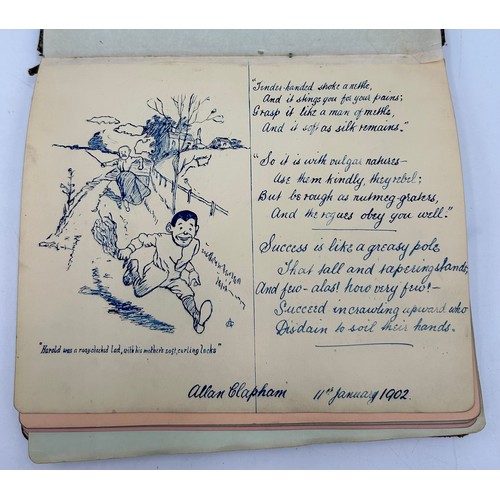 "Tender handed stroke a nettle,
And it stings you for your pains;
Grasp it like a man of mettle,
And it soft as silk remains."
"So it is with vulgar natures—
Use them kindly, they rebel:
But be rough as nutmeg-graters,
And the rogues obey you well."
Success is like a greasy pole
That tall and tapering stands,
And few—alas! how very few!—
Succeed in crawling upward who
Disdain to soil their hands.
"Harold was a rosy-cheeked lad, with his mother's soft, curling locks"
Allan Clapham
11th January 1902.